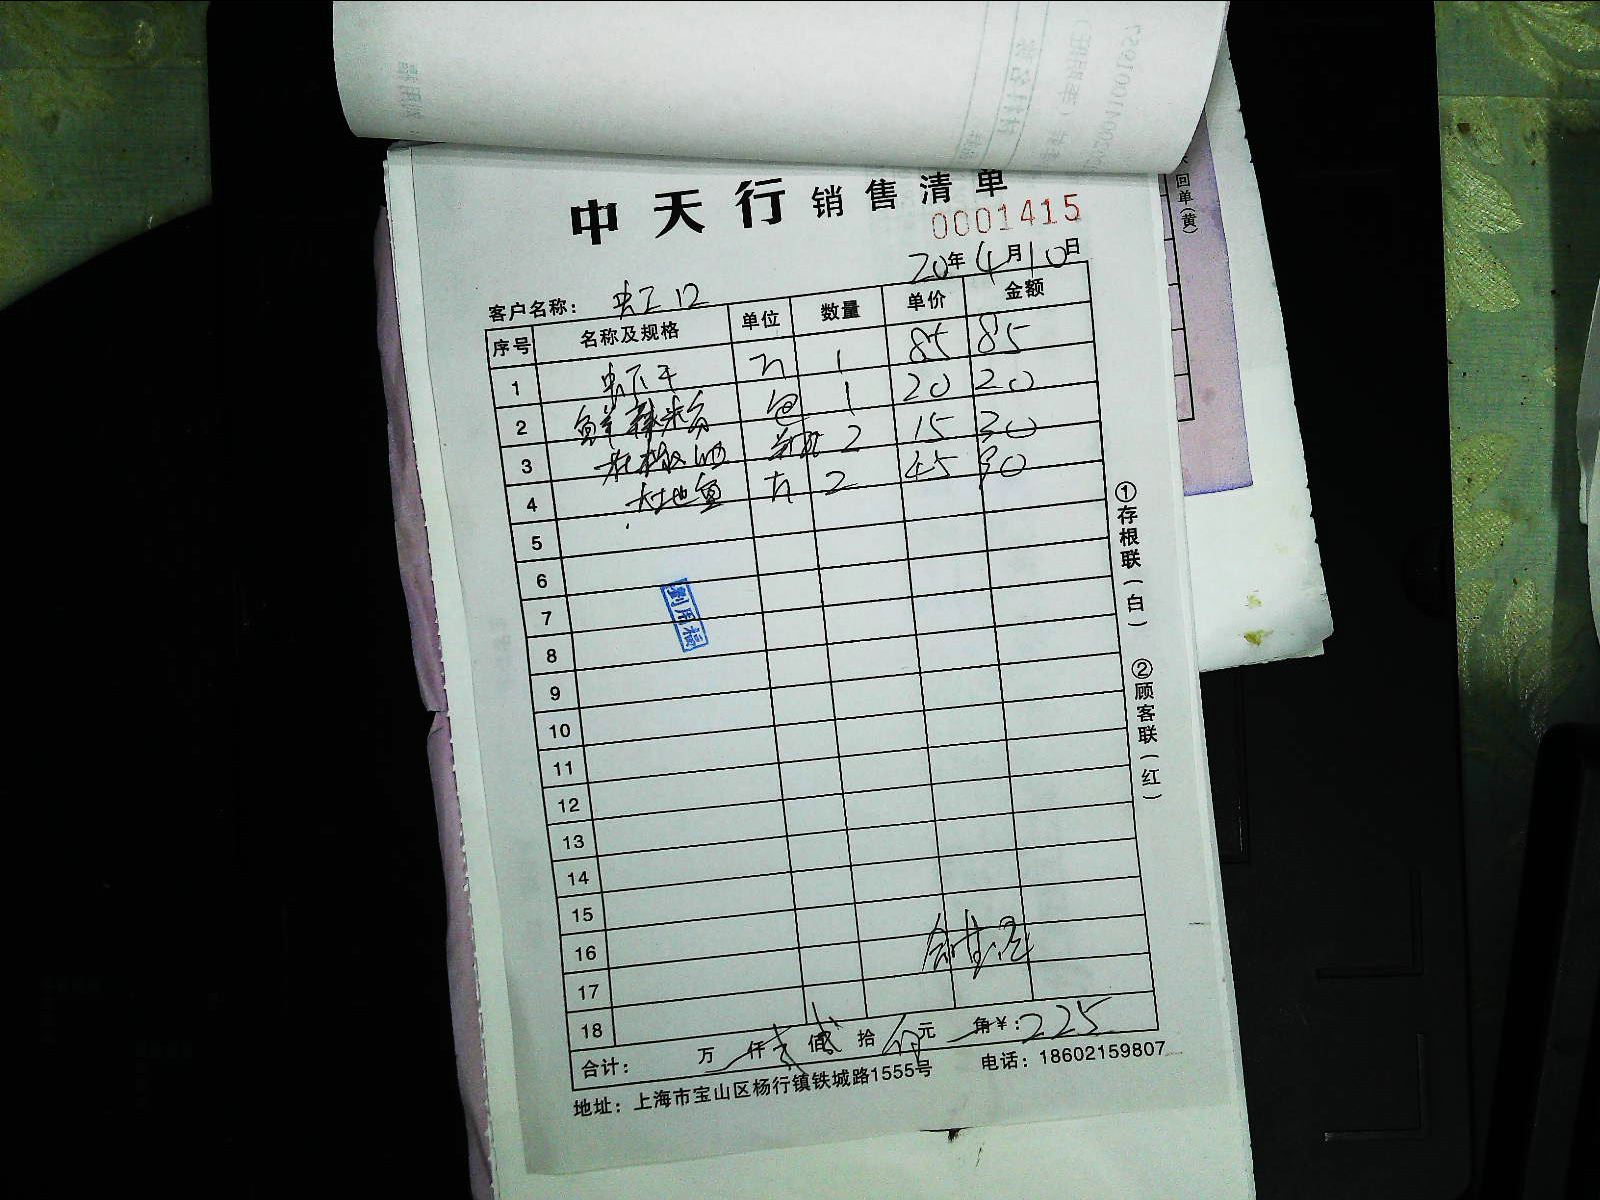 中天行销售清单
0001415
20年4月10日
客户名称： 虹口
序号 名称及规格 单位 数量 单价 金额
1 虾干 斤 1 85 85
2 鲜辣粉 包 1 20 20
3 2 15 30
4 大地鱼 斤 2 45 90
5
6
7
8
9
10
11
12
13
14
15
16
17
18
合计： 万 仟 贰 佰 贰 拾 伍 元 角 ￥：225
地址：上海市宝山区杨行镇铁城路1555号 电话：18602159807
①存根联（白） ②顾客联（红）
回单（黄）